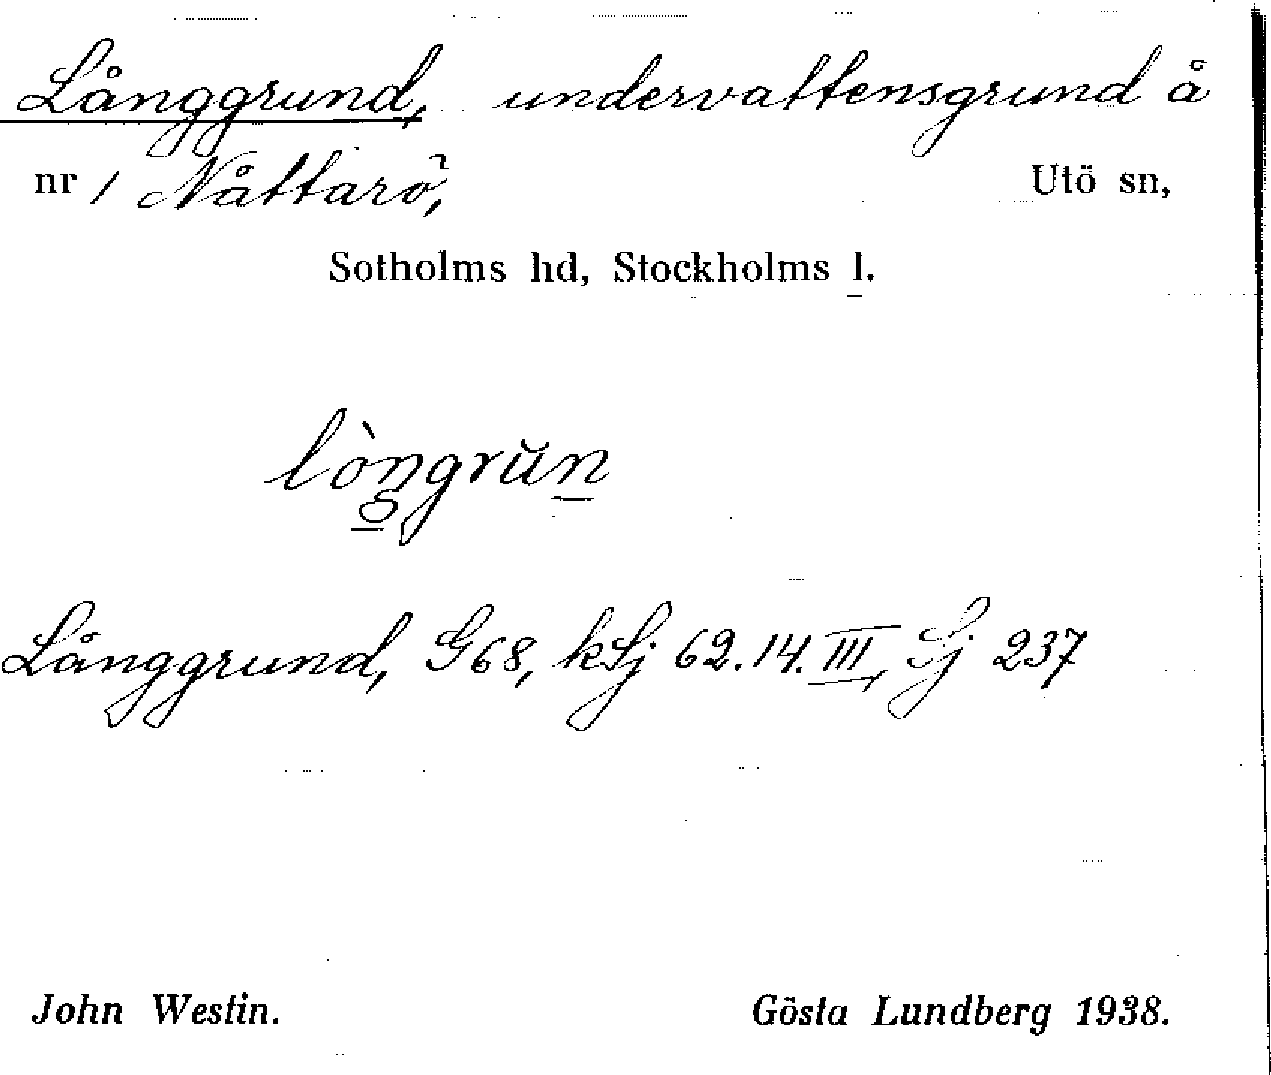 Långgrund, undervattensgrund å
nr 1 Nåttarö, Utö sn,
Sotholms hd, Stockholms l.
lòngrŭn
Långgrund, G68, kSj 62.14.III, Sj 237
John Westin. Gösta Lundberg 1938.